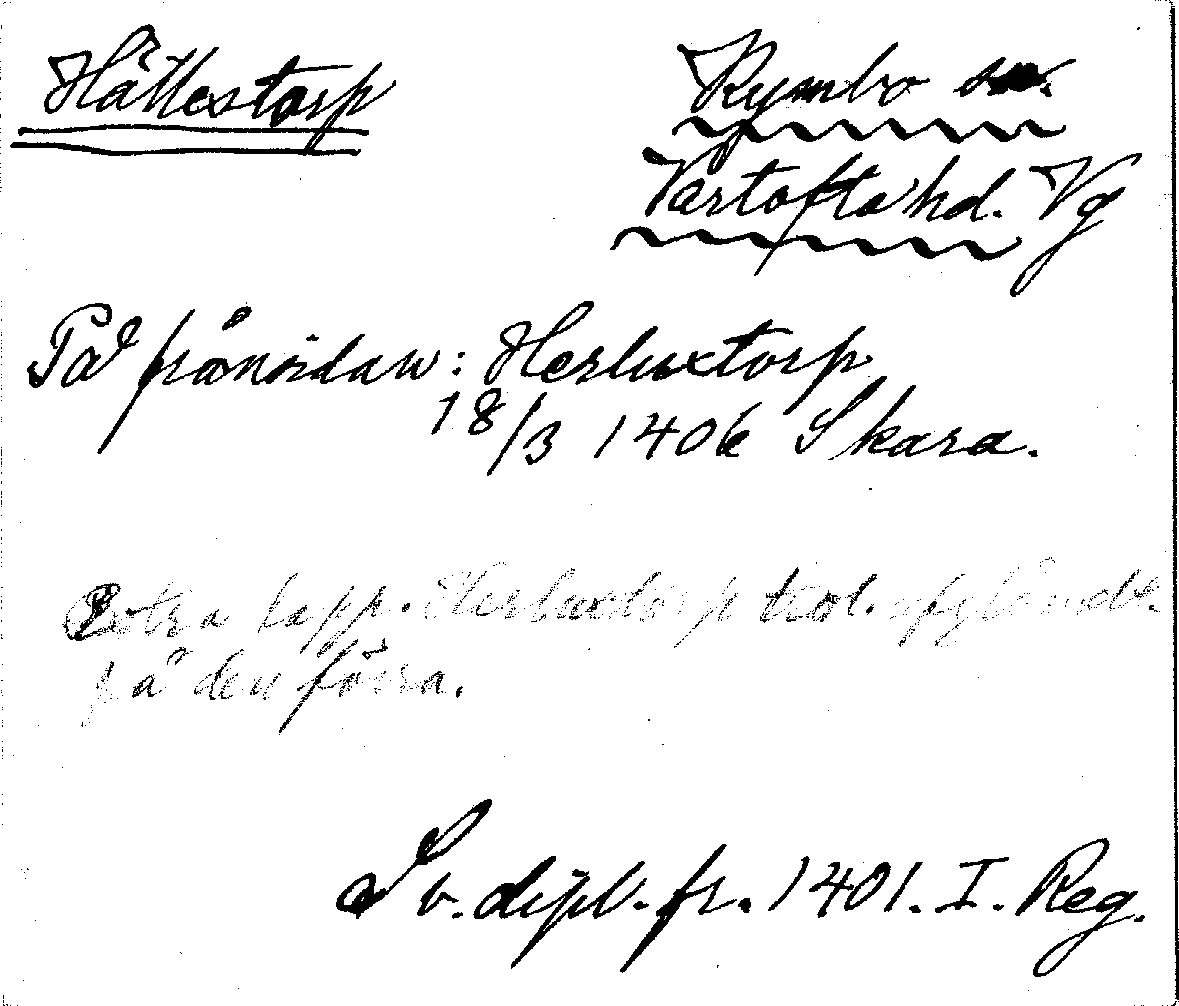 Hättestorp
Kymbo sn.
Vartofta hd. Vg
På frånsidan: Herluxtorp
18/3 1406 Skara.
Extra lapp. Herluxtorp trol.
på den förra.
Sv. dipl. fr. 1401. I. Reg.